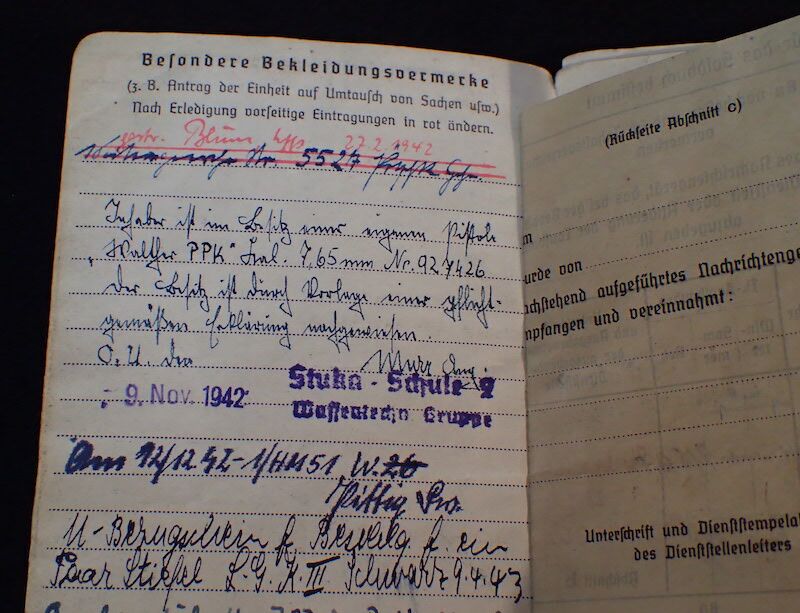 Besondere Bekleidungsvermerke
(z. B. Antrag der Einheit auf Umtausch von Sachen usw.)
Nach Erledigung vorseitige Eintragungen in rot ändern.
gestr. Blum 27.2.1942
Nr. 5527
Inhaber ist im Besitz einer eigenen Pistole
„Walther PPK" Kal. 7,65 mm Nr. 927426
Der Besitz ist durch Vorlage einer pflicht-
gemäßen Erklärung nachgewiesen.
O.U. den
9. Nov. 1942
Stuka-Schule 2
Waffentechn Gruppe
Am 12/12 42 - 1/HM51 W.26
M-Bezugschein f. Besohlg. f. ein
Paar Stiefel L.G.K. III Schwarz 9.4.43
(Rückseite Abschnitt C)
urde von
chstehend aufgeführtes Nachrichtenge
mpfangen und vereinnahmt:
Unterschrift und Dienststempela
des Dienststellenleiters